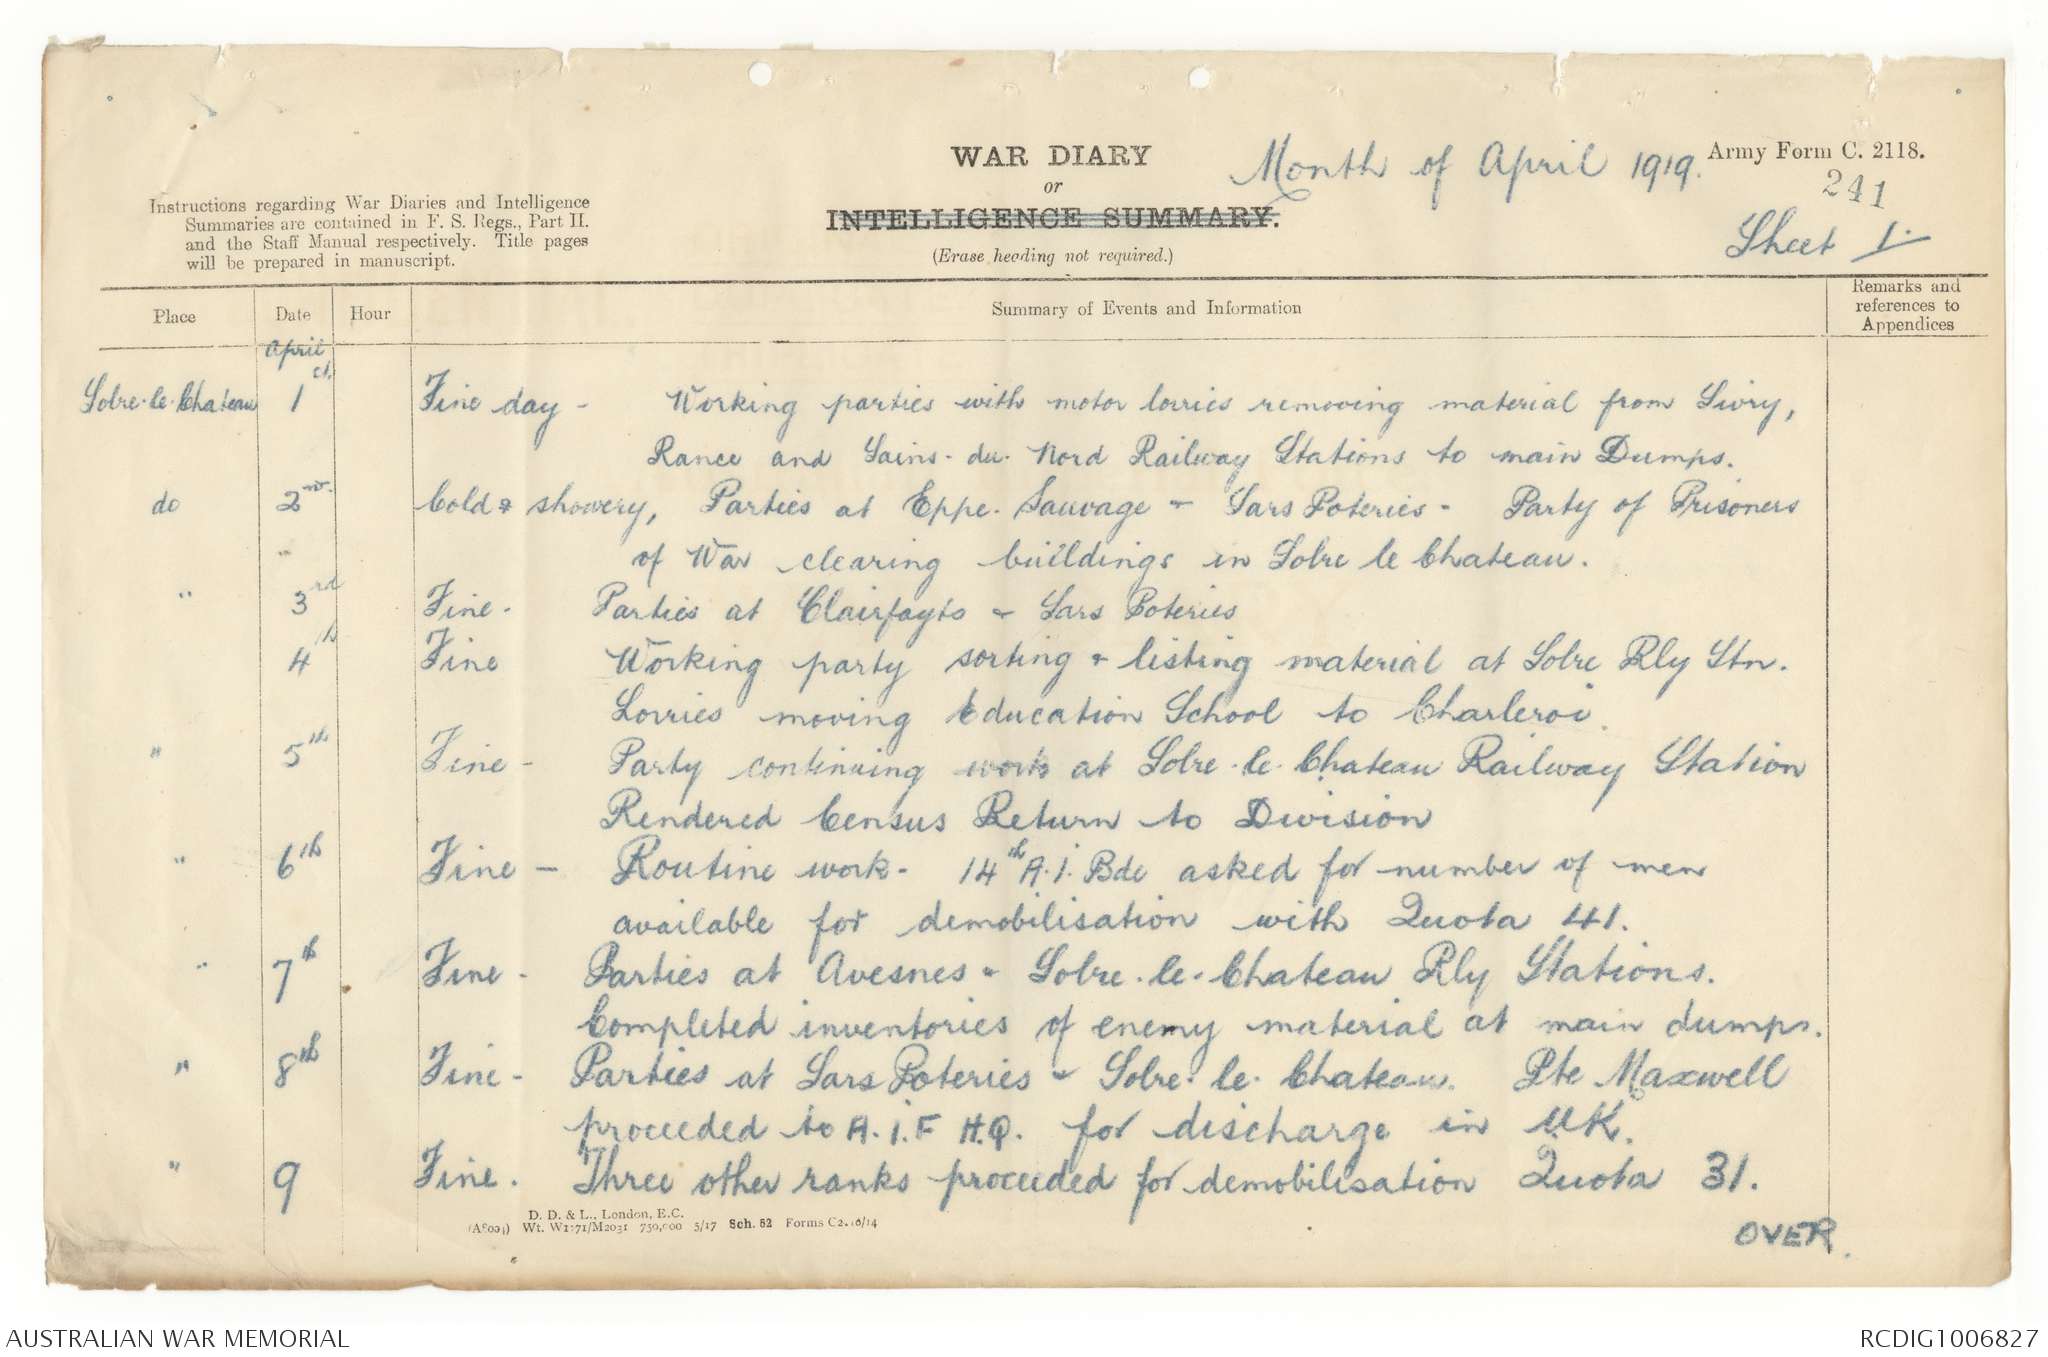 WAR DIARY
or
INTELLIGENCE SUMMARY.
(Erase heading not required.)
Month of April 1919.
Army Form C. 2118.
241
Sheet 1.
Instructions regarding War Diaries and Intelligence
Summaries are contained in F. S. Regs., Part II.
and the Staff Manual respectively. Title pages
will be prepared in manuscript.
Place Date Hour Summary of Events and Information Remarks and
references to
Appendices
April
Solre-le-Chateau 1st. Fine day - Working parties with motor lorries removing material from Sivry,
Rance and Sains-du-Nord Railway Stations to main Dumps.
do 2nd. Cold & showery, Parties at Eppe-Sauvage & Sars Poteries - Party of Prisoners
of War clearing buildings in Solre le Chateau.
" 3rd Fine - Parties at Clairfayts & Sars Poteries
4th Fine Working party sorting & listing material at Solre Rly Stn.
Lorries moving Education School to Charleroi.
" 5th Fine - Party continuing work at Solre-le-Chateau Railway Station
Rendered Census Return to Division
" 6th Fine - Routine work - 14th A.I. Bde asked for number of men
available for demobilisation with Quota 41.
" 7th Fine - Parties at Avesnes & Solre-le-Chateau Rly Stations.
Completed inventories of enemy material at main dumps.
" 8th Fine - Parties at Sars Poteries & Solre-le-Chateau. Pte Maxwell
proceeded to A.I.F H.Q. for discharge in U.K.
" 9 Fine. Three other ranks proceeded for demobilisation Quota 31.
D. D. & L., London, E.C.
Wt. W1771/M2031 750,000 5/17 Sch. 52 Forms C2118/14
OVER.
AUSTRALIAN WAR MEMORIAL
RCDIG1006827